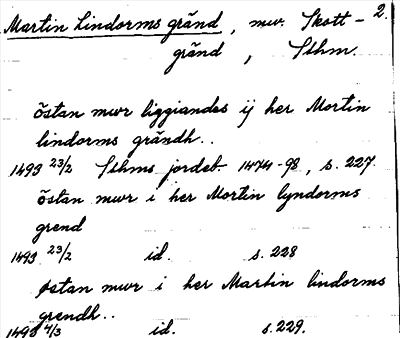 Martin Lindorms gränd, nuv. Skott- 2.
gränd, Sthm.
östan mwr liggiandes ij her Mortin
lindorms grändh..
1493 23/2 Sthms jordeb. 1474-98, s. 227.
östan mwr i her Mortin lyndorms
grend
1493 23/2 id. s. 228
östan mwr i her Martin lindorms
grendh..
1493 4/3 id. s. 229.